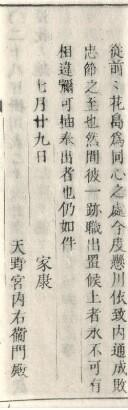 従前〻花島為同心之處今度懸川依致内通成敗
忠節之至也然間彼一跡職出置候上者永不可有
相違彌可抽奉出者也仍如件
七月廿九日
家康
天野宮内右衞門殿